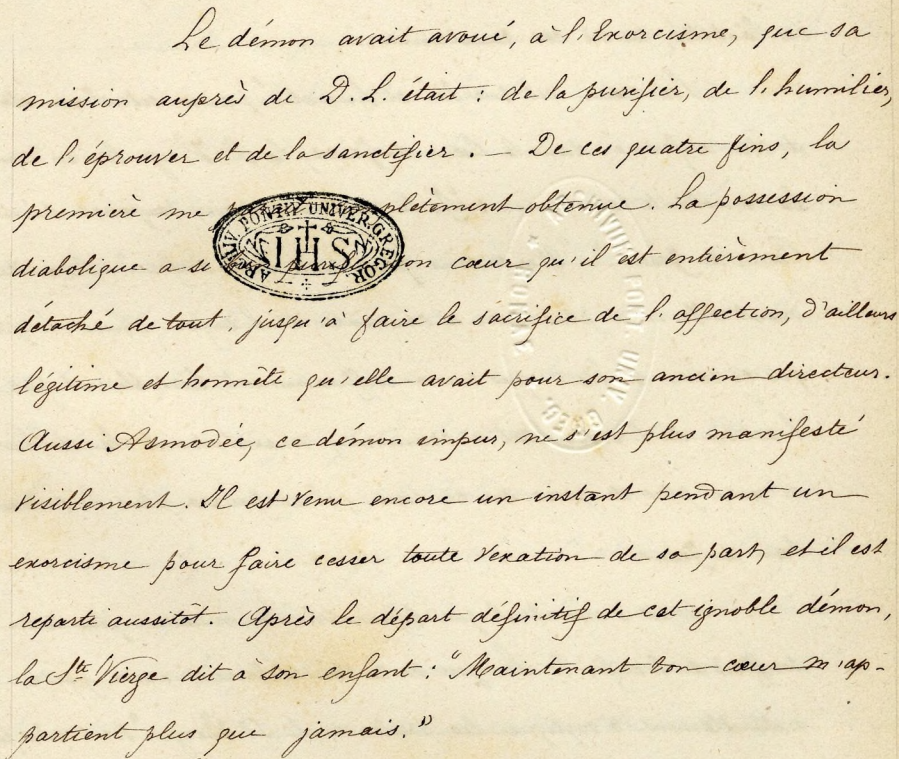 Le démon avait avoué, à l'Exorcisme, que sa
mission auprès de D. L. était : de la purifier, de l'humilier,
de l'éprouver et de la sanctifier. — De ces quatre fins, la
première me plètement obtenue. La possession
ARCHIV. PONTIF. UNIVER. GREGOR.
IHS
diabolique a si on cœur qu'il est entièrement
détaché de tout, jusqu'à faire le sacrifice de l'affection, d'ailleurs
légitime et honnête qu'elle avait pour son ancien directeur.
Aussi Asmodée, ce démon impur, ne s'est plus manifesté
visiblement. Il est venu encore un instant pendant un
exorcisme pour faire cesser toute vexation de sa part, et il est
reparti aussitôt. Après le départ définitif de cet ignoble démon,
la Ste Vierge dit à son enfant : "Maintenant ton cœur m'ap-
partient plus que jamais."